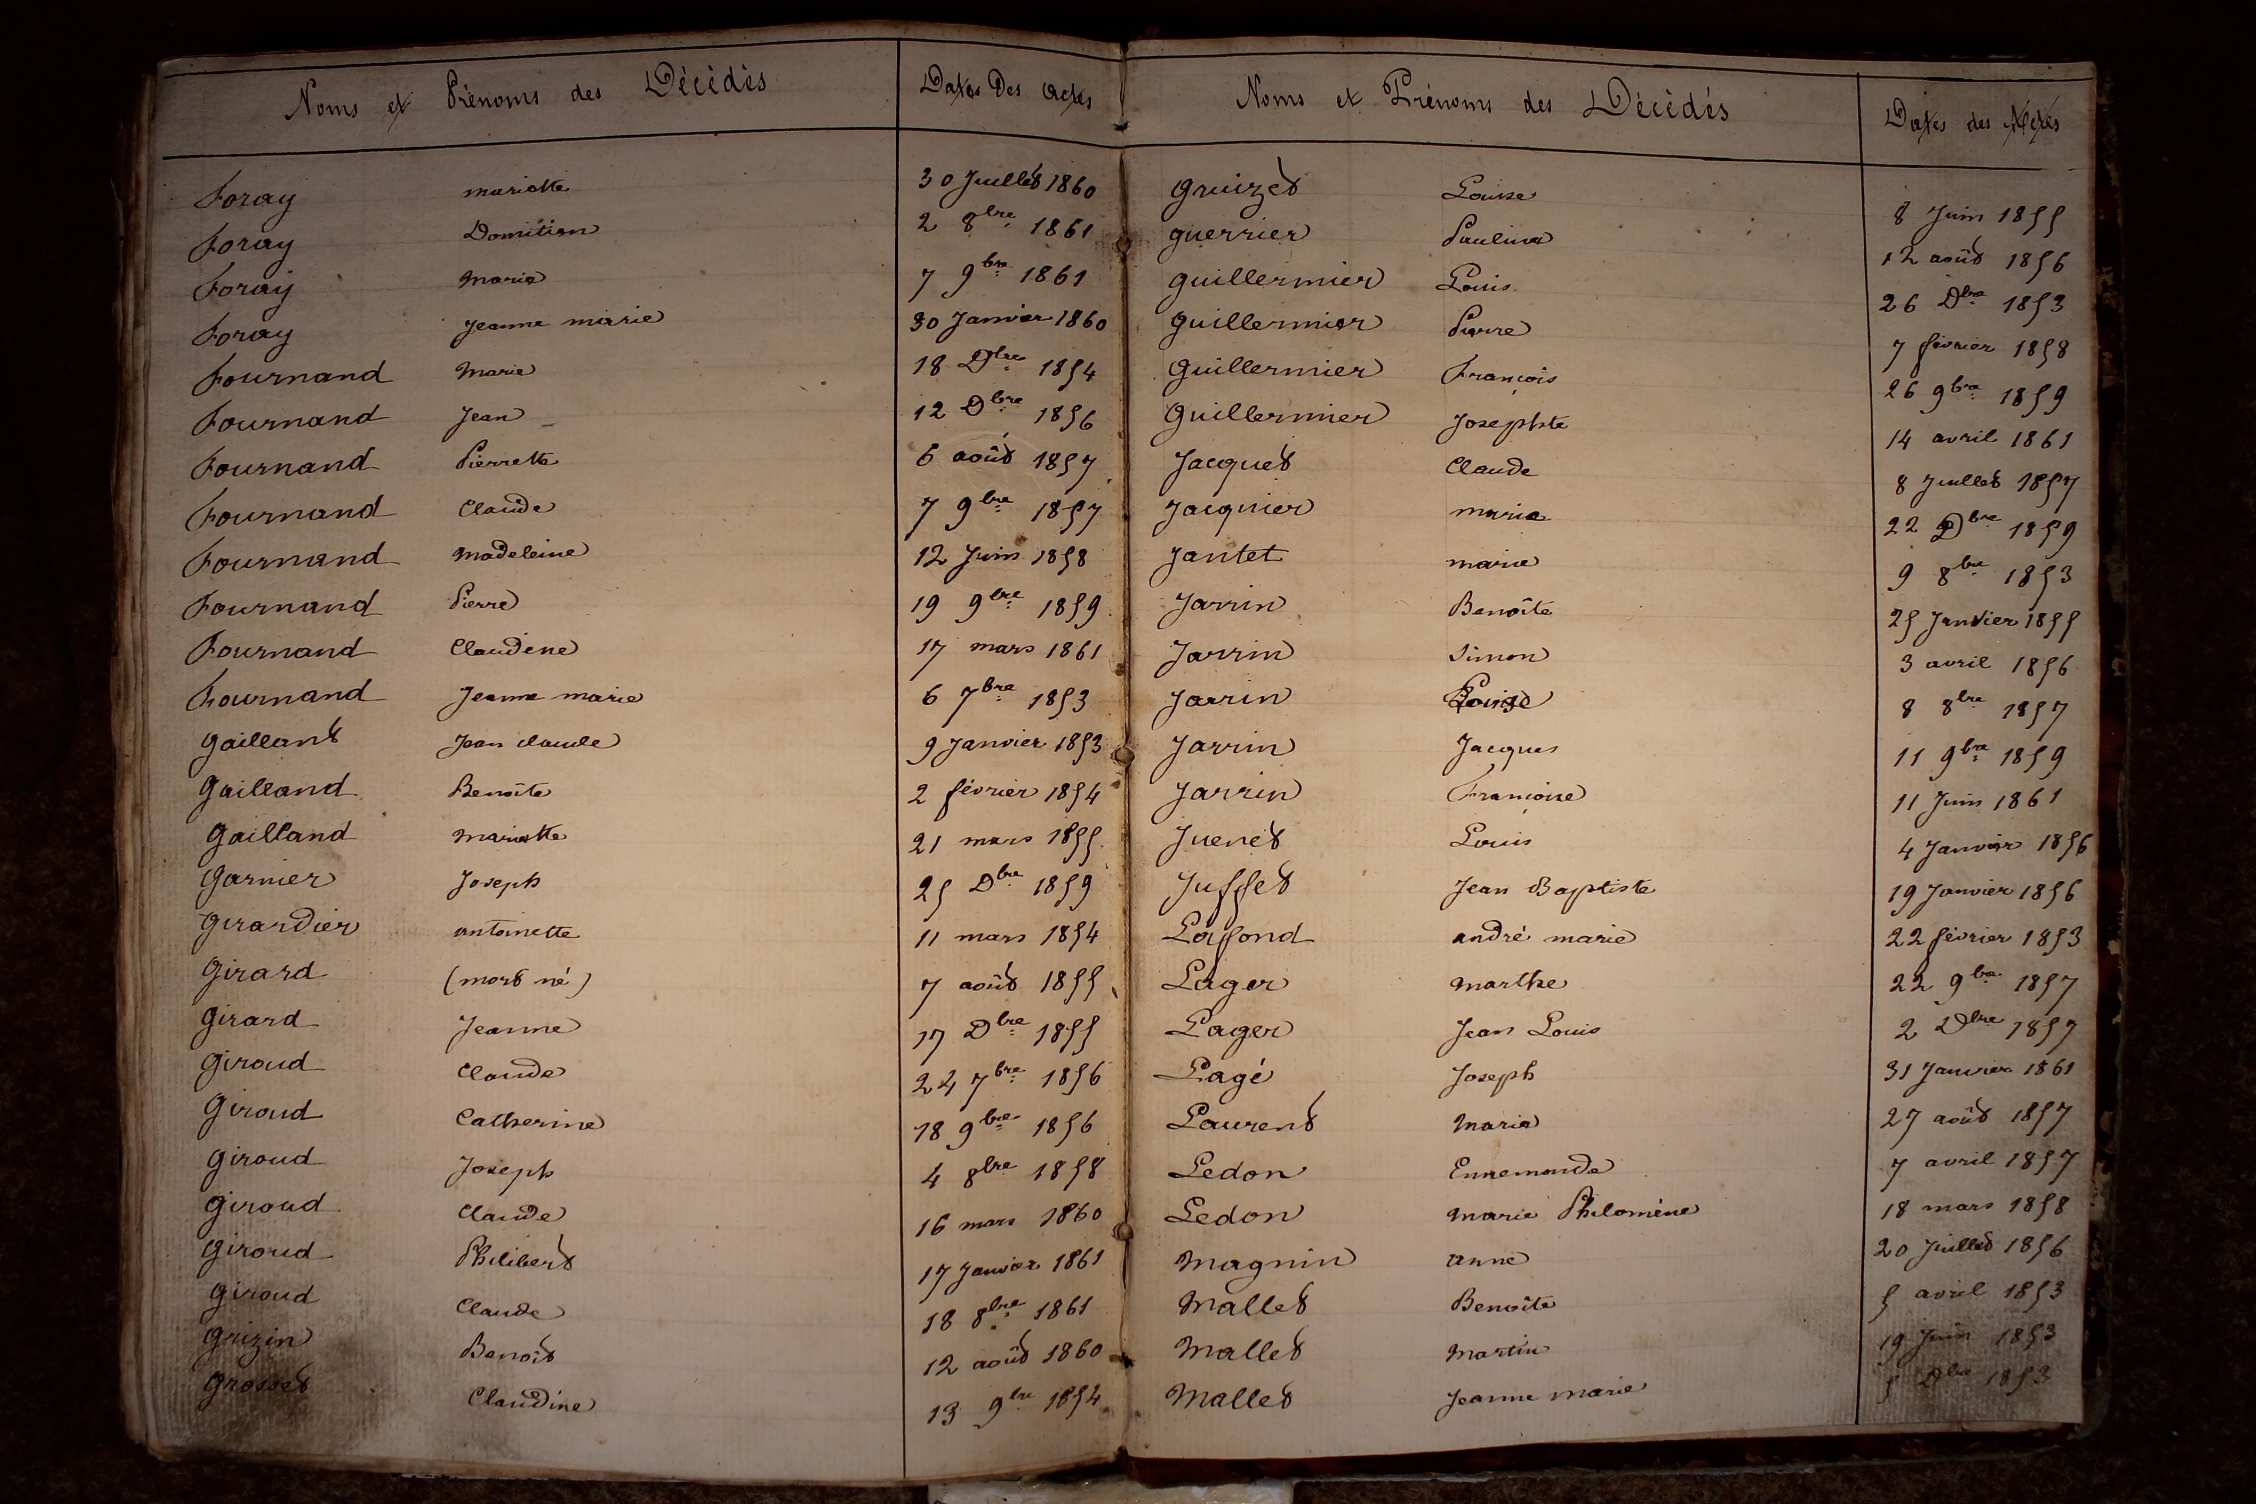 Noms et Prénoms des Décédés Dates Des Actes
Foray mariette 30 Juillet 1860
Foray Domitien 2 8bre 1861
Foray Marie 7 9bre 1861
Foray Jeanne marie 30 Janvier 1860
Fournand Marie 18 Dbre 1854
Fournand Jean 12 Dbre 1856
Fournand Pierrette 6 août 1857
Fournand Claude 7 9bre 1857
Fournand Madeleine 12 Juin 1858
Fournand Pierre 19 9bre 1859
Fournand Claudine 17 mars 1861
Fournand Jeanne marie 6 7bre 1853
Gaillant Jean claude 9 Janvier 1853
Gailland Benoîte 2 février 1854
Gailland Mariette 21 mars 1855
Garnier Joseph 25 Dbre 1859
Girardier antoinette 11 mars 1854
Girard (mort né) 7 août 1855
Girard Jeanne 17 Dbre 1855
Giroud Claude 24 7bre 1856
Giroud Catherine 18 9bre 1856
Giroud Joseph 4 8bre 1858
Giroud Claude 16 mars 1860
Giroud Philibert 17 Janvier 1861
Giroud Claude 18 8bre 1861
Grizin Benoît 12 août 1860
Grosset Claudine 13 9bre 1854
Noms et Prénoms des Décédés Dates des Actes
Gruizet Louise 8 Juin 1855
Guerrier Pauline 12 août 1856
Guillermier Louis 26 Dbre 1853
Guillermier Pierre 7 février 1858
Guillermier François 26 9bre 1859
Guillermier Josephte 14 avril 1861
Jacquet Claude 8 Juillet 1857
Jacquier marie 22 Dbre 1859
Jantet marie 9 8bre 1853
Jarrin Benoîte 25 Janvier 1855
Jarrin Simon 3 avril 1856
Jarrin Louise 8 8bre 1857
Jarrin Jacques 11 9bre 1859
Jarrin Françoise 11 Juin 1861
Juenet Louis 4 Janvier 1856
Juffet Jean Baptiste 19 Janvier 1856
Laffond andré marie 22 février 1853
Lager Marthe 22 9bre 1857
Lager Jean Louis 2 Dbre 1857
Lagé Joseph 31 Janvier 1861
Laurent Marie 27 août 1857
Ledon Ennemonde 7 avril 1857
Ledon Marie Philomène 18 mars 1858
Magnin Anne 20 Juillet 1856
Mallet Benoîte 5 avril 1853
Mallet Martin 19 Juin 1853
Mallet Jeanne marie 5 Dbre 1853